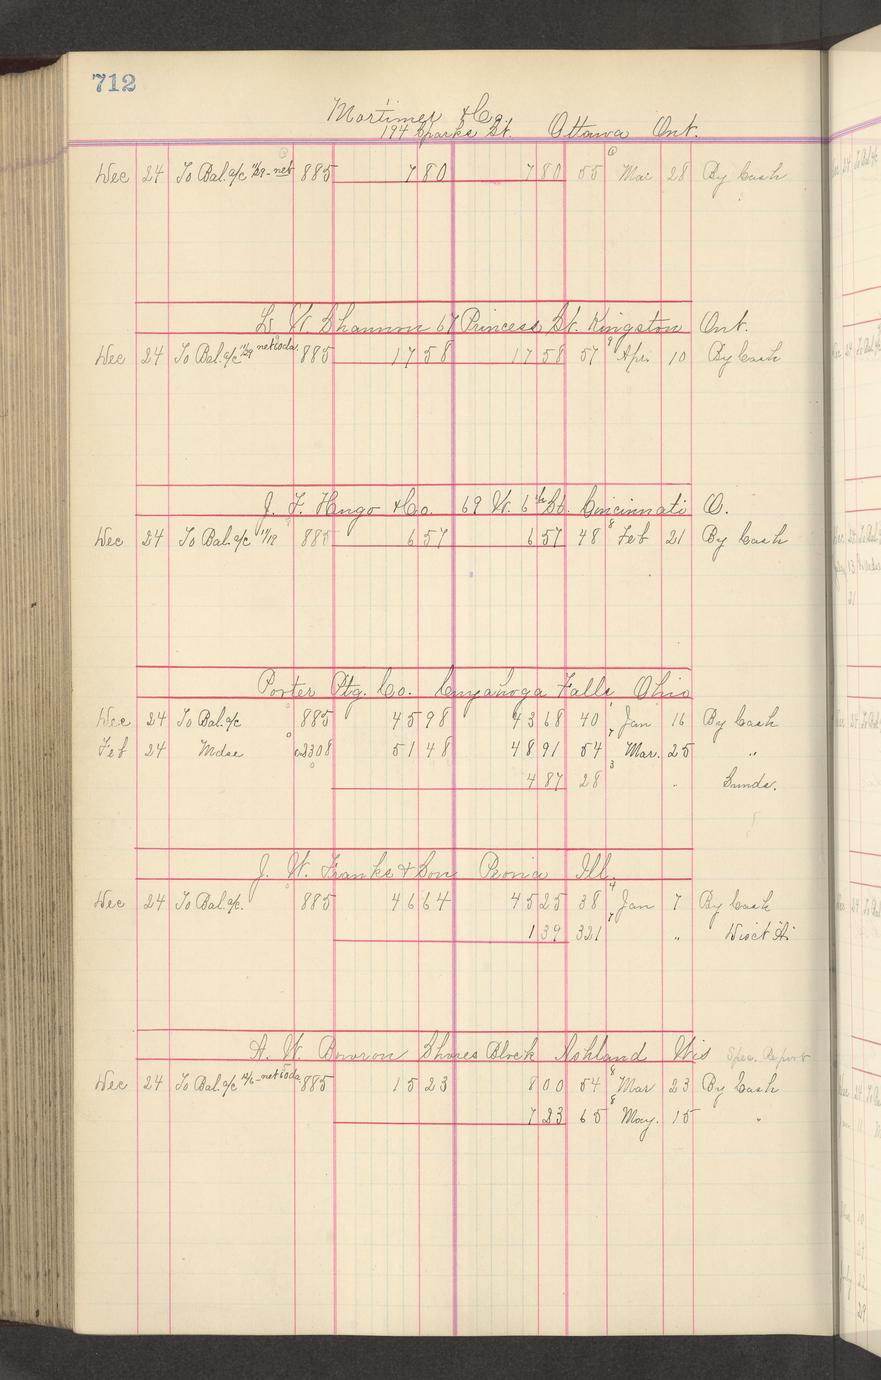 712
Mortimer & Co.
194 Sparks St. Ottawa Ont.
Dec 24 To Bal. a/c 11/29 - net 885 7 80 7 80 55 Mar 28 By Cash
L. W. Shannon 67 Princess St. Kingston Ont.
Dec 24 To Bal. a/c 11/29 net 60 da. 885 17 58 17 58 57 Apr. 10 By Cash
J. F. & Co. 69 W. 6th St. Cincinnati O.
Dec 24 To Bal. a/c 11/19 885 6 57 6 57 48 Feb 21 By Cash
Porter Ptg. Co. Cuyahoga Falls Ohio
Dec 24 To Bal. a/c 885 45 98 43 68 40 Jan 16 By Cash
Feb 24 Mdse 2308 51 48 48 91 54 Mar. 25 "
4 87 28 " Sunds.
J. W. Franks & Son Peoria Ill.
Dec 24 To Bal. a/c. 885 46 64 45 25 38 Jan 7 By Cash
1 39 321 "
A. W. Bowron Shores Block Ashland Wis Spec. Report
Dec 24 To Bal. a/c 12/6 - net 60 da 885 15 23 8 00 54 Mar 23 By Cash
7 23 65 May. 15 "